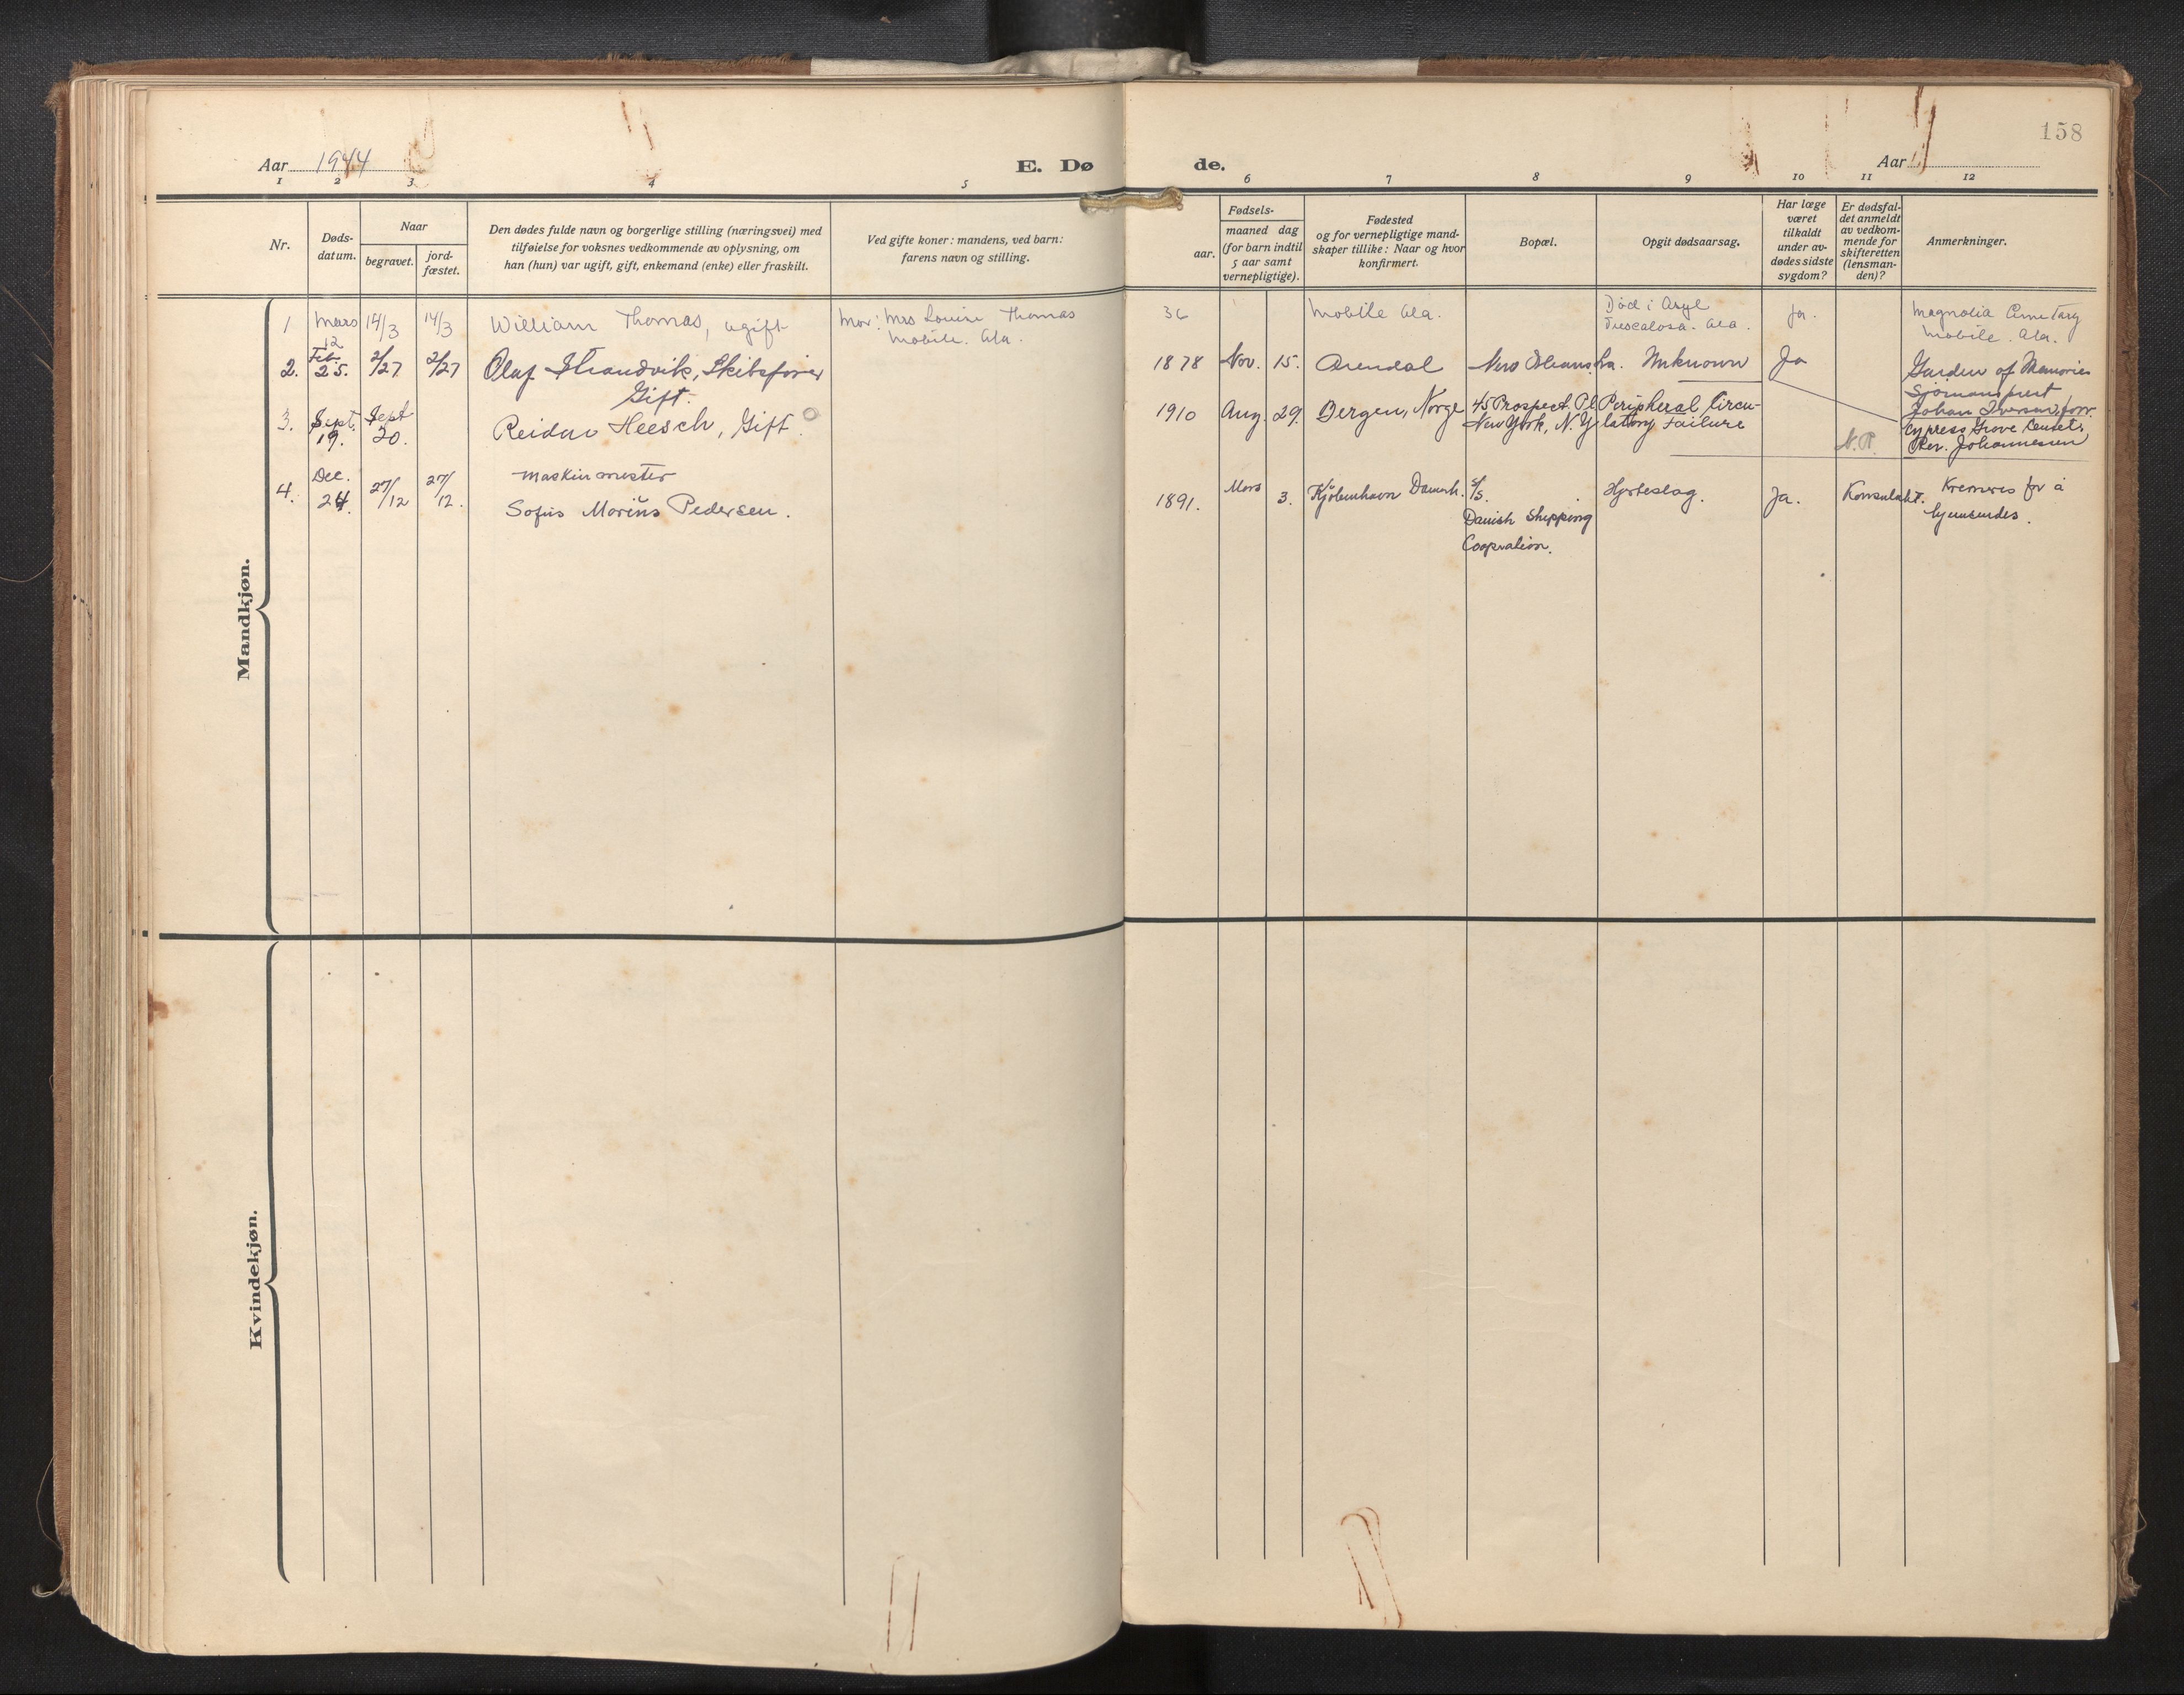 158
Aar 1944
E. Dø
de.
Aar
1 2 3 4 5 6 7 8 9 10 11 12
Nr.
Døds-
datum.
Naar
begravet.
jord-
fæstet.
Den dødes fulde navn og borgerlige stilling (næringsvei) med
tilføielse for voksnes vedkommende av oplysning, om
han (hun) var ugift, gift, enkemand (enke) eller fraskilt.
Ved gifte koner: mandens, ved barn:
farens navn og stilling.
Fødsels-
aar.
maaned dag
(for barn indtil
5 aar samt
vernepligtige).
Fødested
og for vernepligtige mand-
skaper tillike: Naar og hvor
konfirmert.
Bopæl.
Opgit dødsaarsag.
Har læge
været
tilkaldt
under av-
dødes sidste
sygdom?
Er dødsfal-
det anmeldt
av vedkom-
mende for
skifteretten
(lensman-
den)?
Anmerkninger.
Mandkjøn.
1 Mars 12 14/3 14/3 William Thomas, ugift Mor: Mrs Louise Thomas
Mobile. Ala.
36 Mobile Ala. Död i Asyl
Tuscalosa. Ala. Ja. Magnolia Cemetary
Mobile. Ala.
2. Feb. 25. 2/27 2/27 Olaf Strandvik, Skibsfører
Gift.
1878 Nov. 15. Arendal New Orleans, La. Unknown Ja Garden of Memories
Sjömansprest
Johan Iversen, forr.
3. Sept. 19. Sept 20. Reidar Heesch, Gift.
1910 Aug. 29. Bergen, Norge 45 Prospect Pl. Peripheral Circu-
New York, N.Y. latory Failure N.P. Cypress Grove Cemet.
Rev. Johannesen
4. Dec. 24. 27/12 27/12. Maskinmester
Sofus Marius Pedersen.
1891. Mars 3. Kjöbenhavn Danmk. S/S.
Danish Shipping
Coopration.
Hjerteslag. Ja. Konsulatet. Kremeres for å
hjemsendes.
Kvindekjøn.